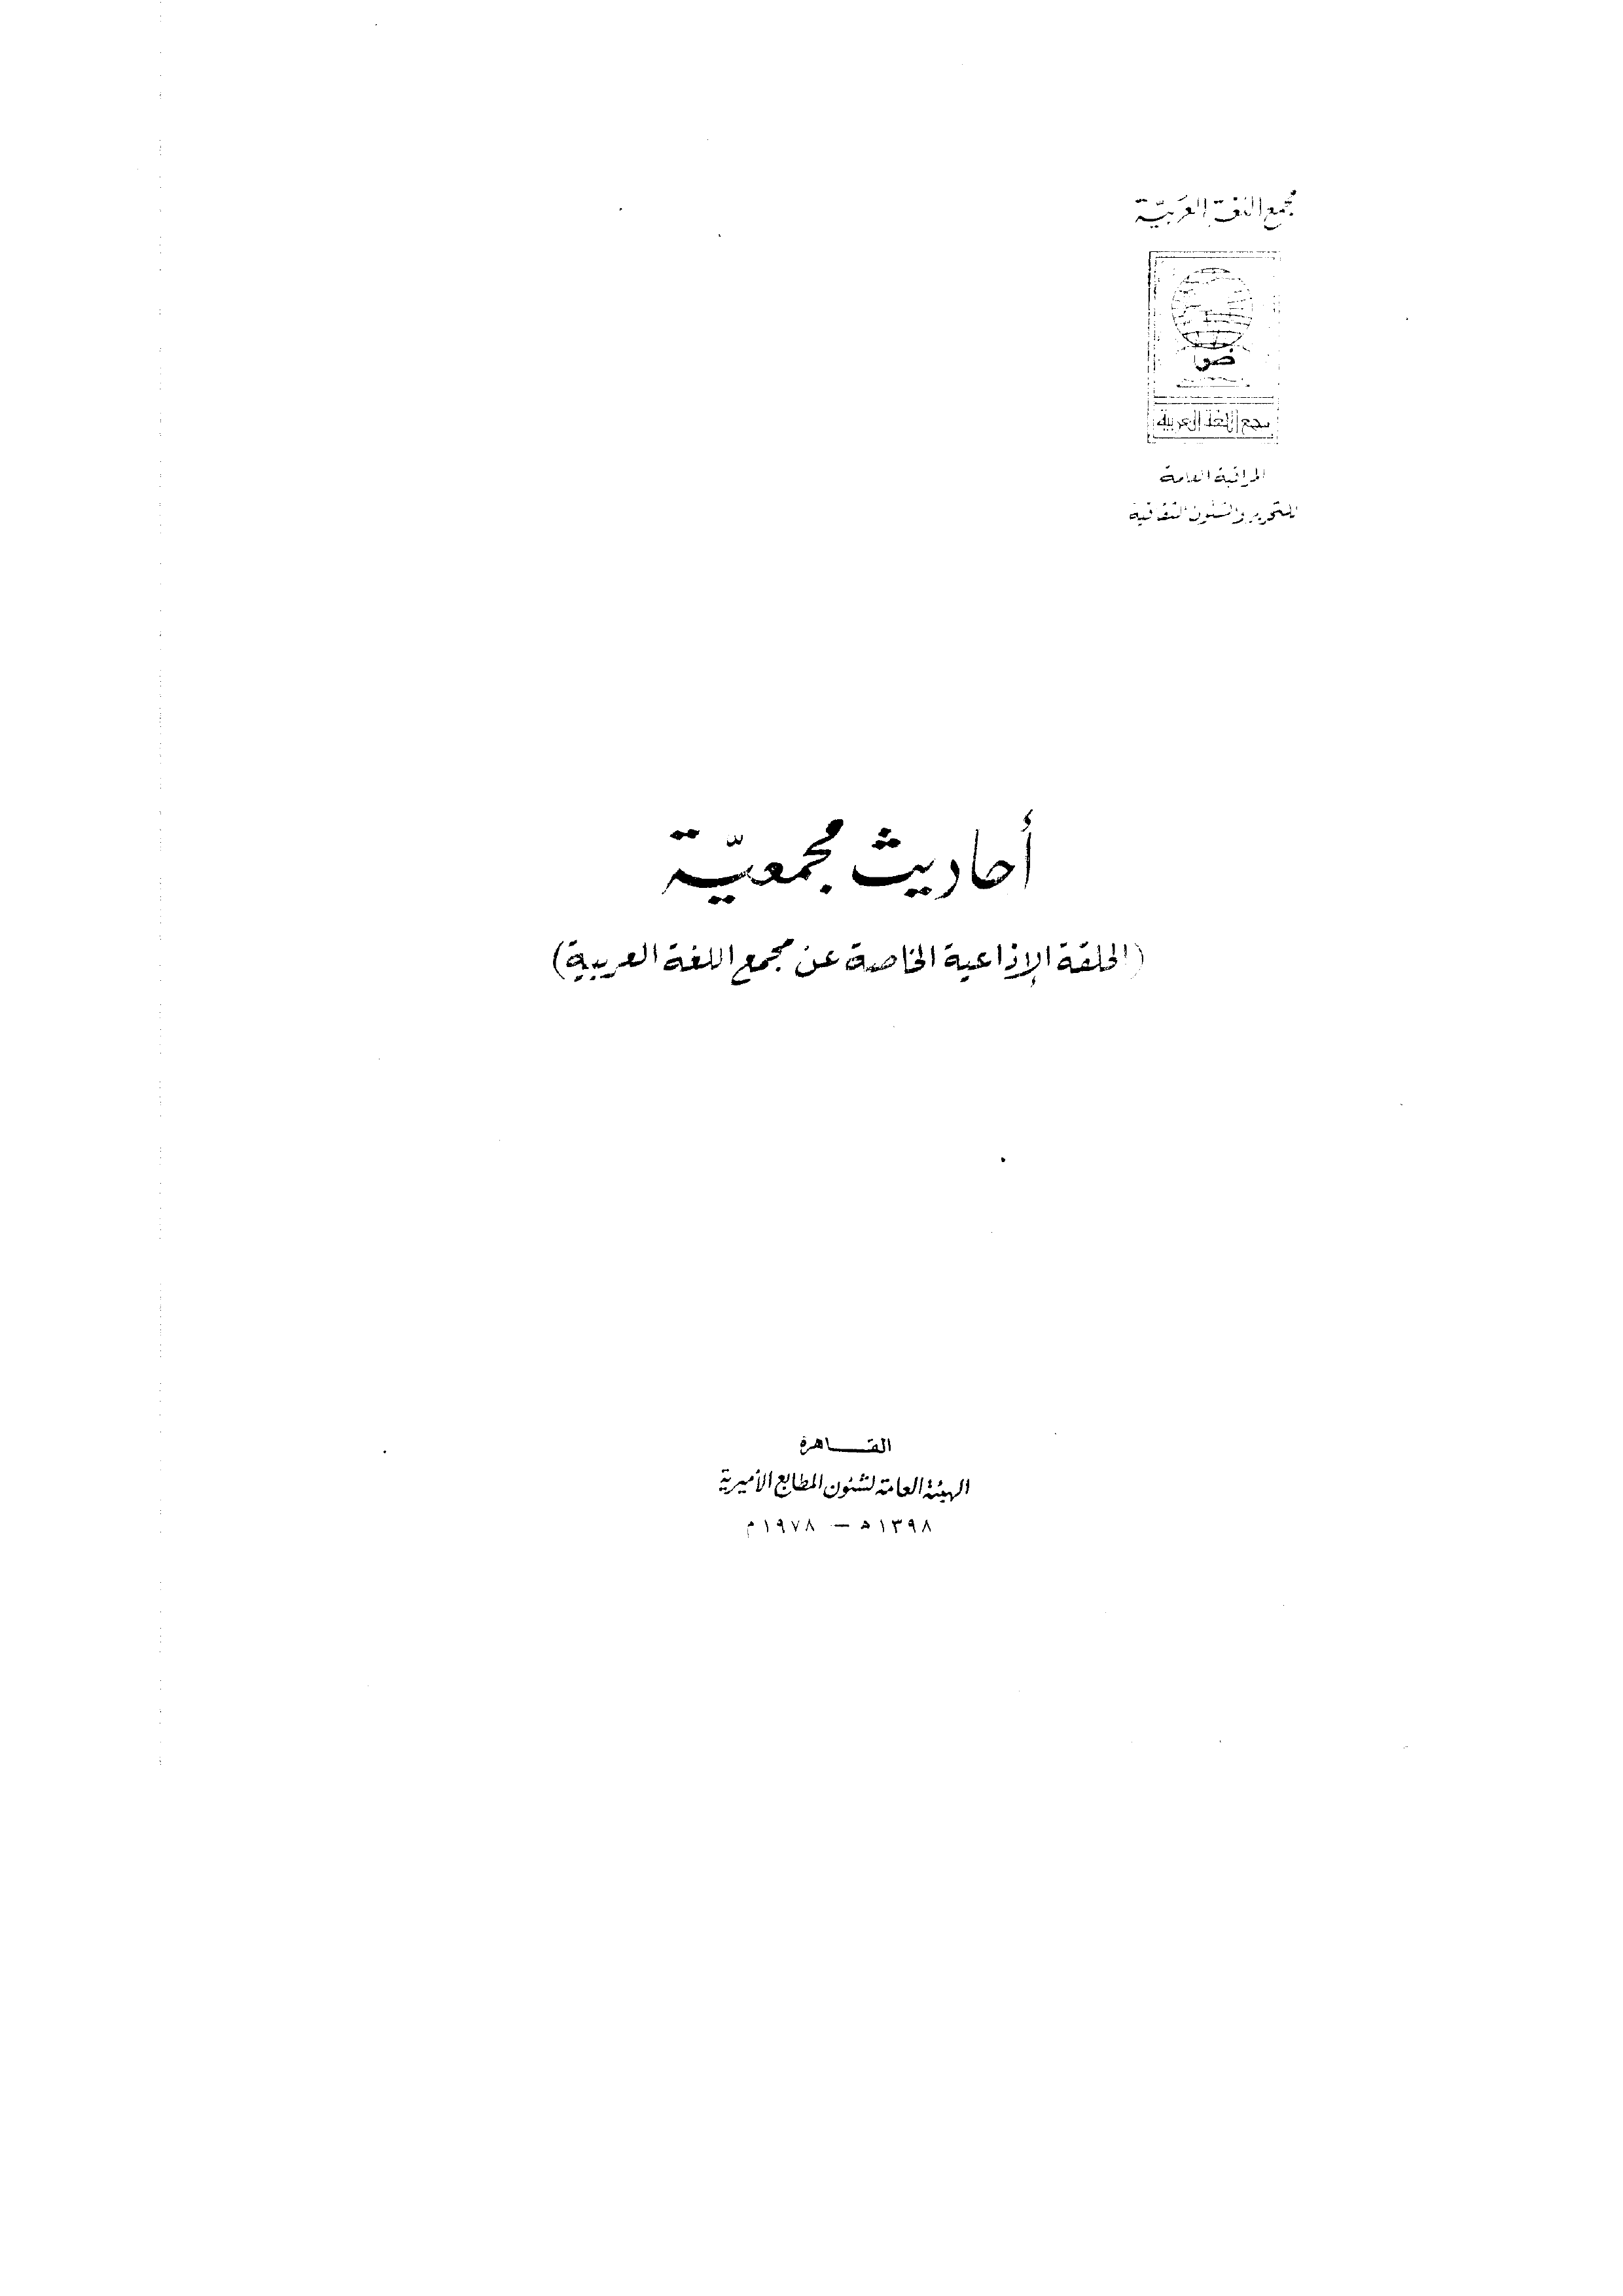 مجمع اللغة العربيّة
ض
مجمع اللغة العربية
المراقبة العامة
للتحرير والشئون الثقافية
أحاديث مجمعيّة
(الحلقة الإذاعية الخاصة عن مجمع اللغة العربية)
القـــاهرة
الهيئة العامة لشئون المطابع الأميرية
١٣٩٨ ه‍ — ١٩٧٨ م